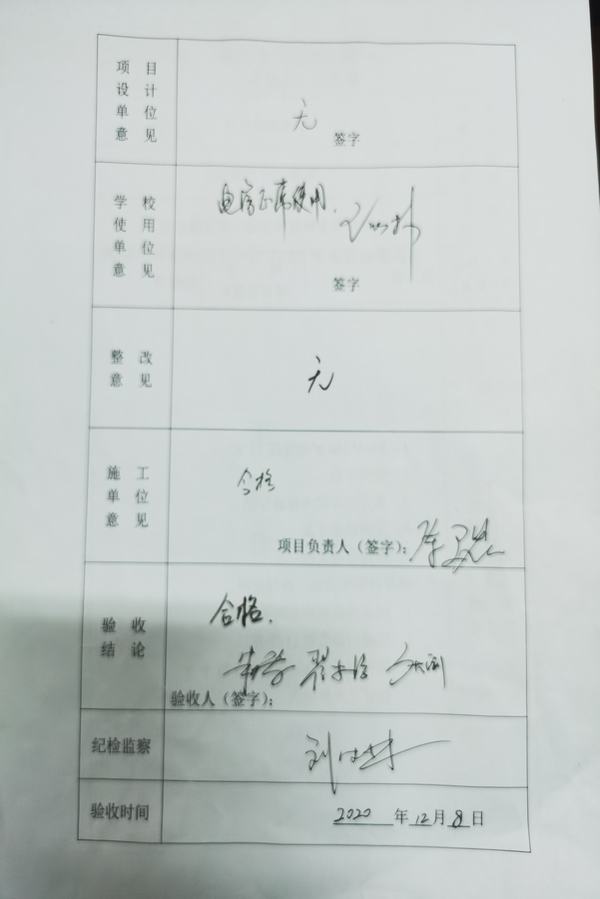 项目
设计
单位
意见
无
签字
学校
使用
单位
意见
正常使用.
签字
整改
意见
无
施工
单位
意见
合格
项目负责人（签字）:
验收
结论
合格.
验收人（签字）:
纪检监察
验收时间
2020 年 12 月 8 日